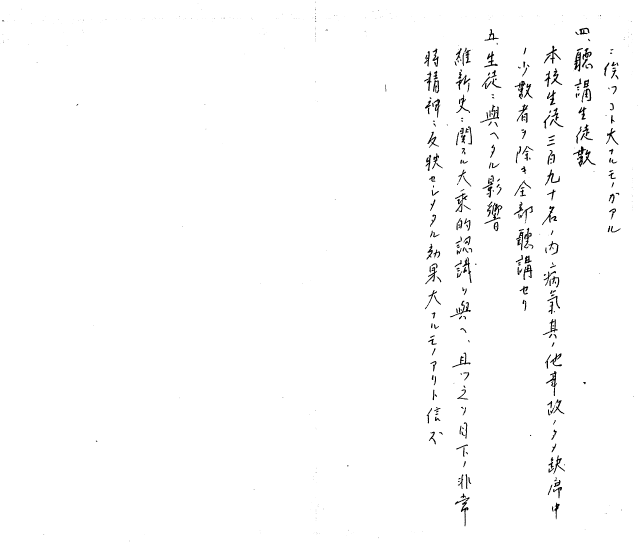 ニ俟ツコト大ナルモノガアル
四、聽講生徒數
本校生徒三百九十名ノ内ニ病氣其ノ他事故ノタメ缺席中
ノ少數者ヲ除キ全部聽講セリ
五、生徒ニ與ヘタル影響
維新史ニ關スル大乘的認識ヲ與ヘ、且ツ之ヲ目下ノ非常
時精神ニ反映セシメタル効果大ナルモノアリト信ズ